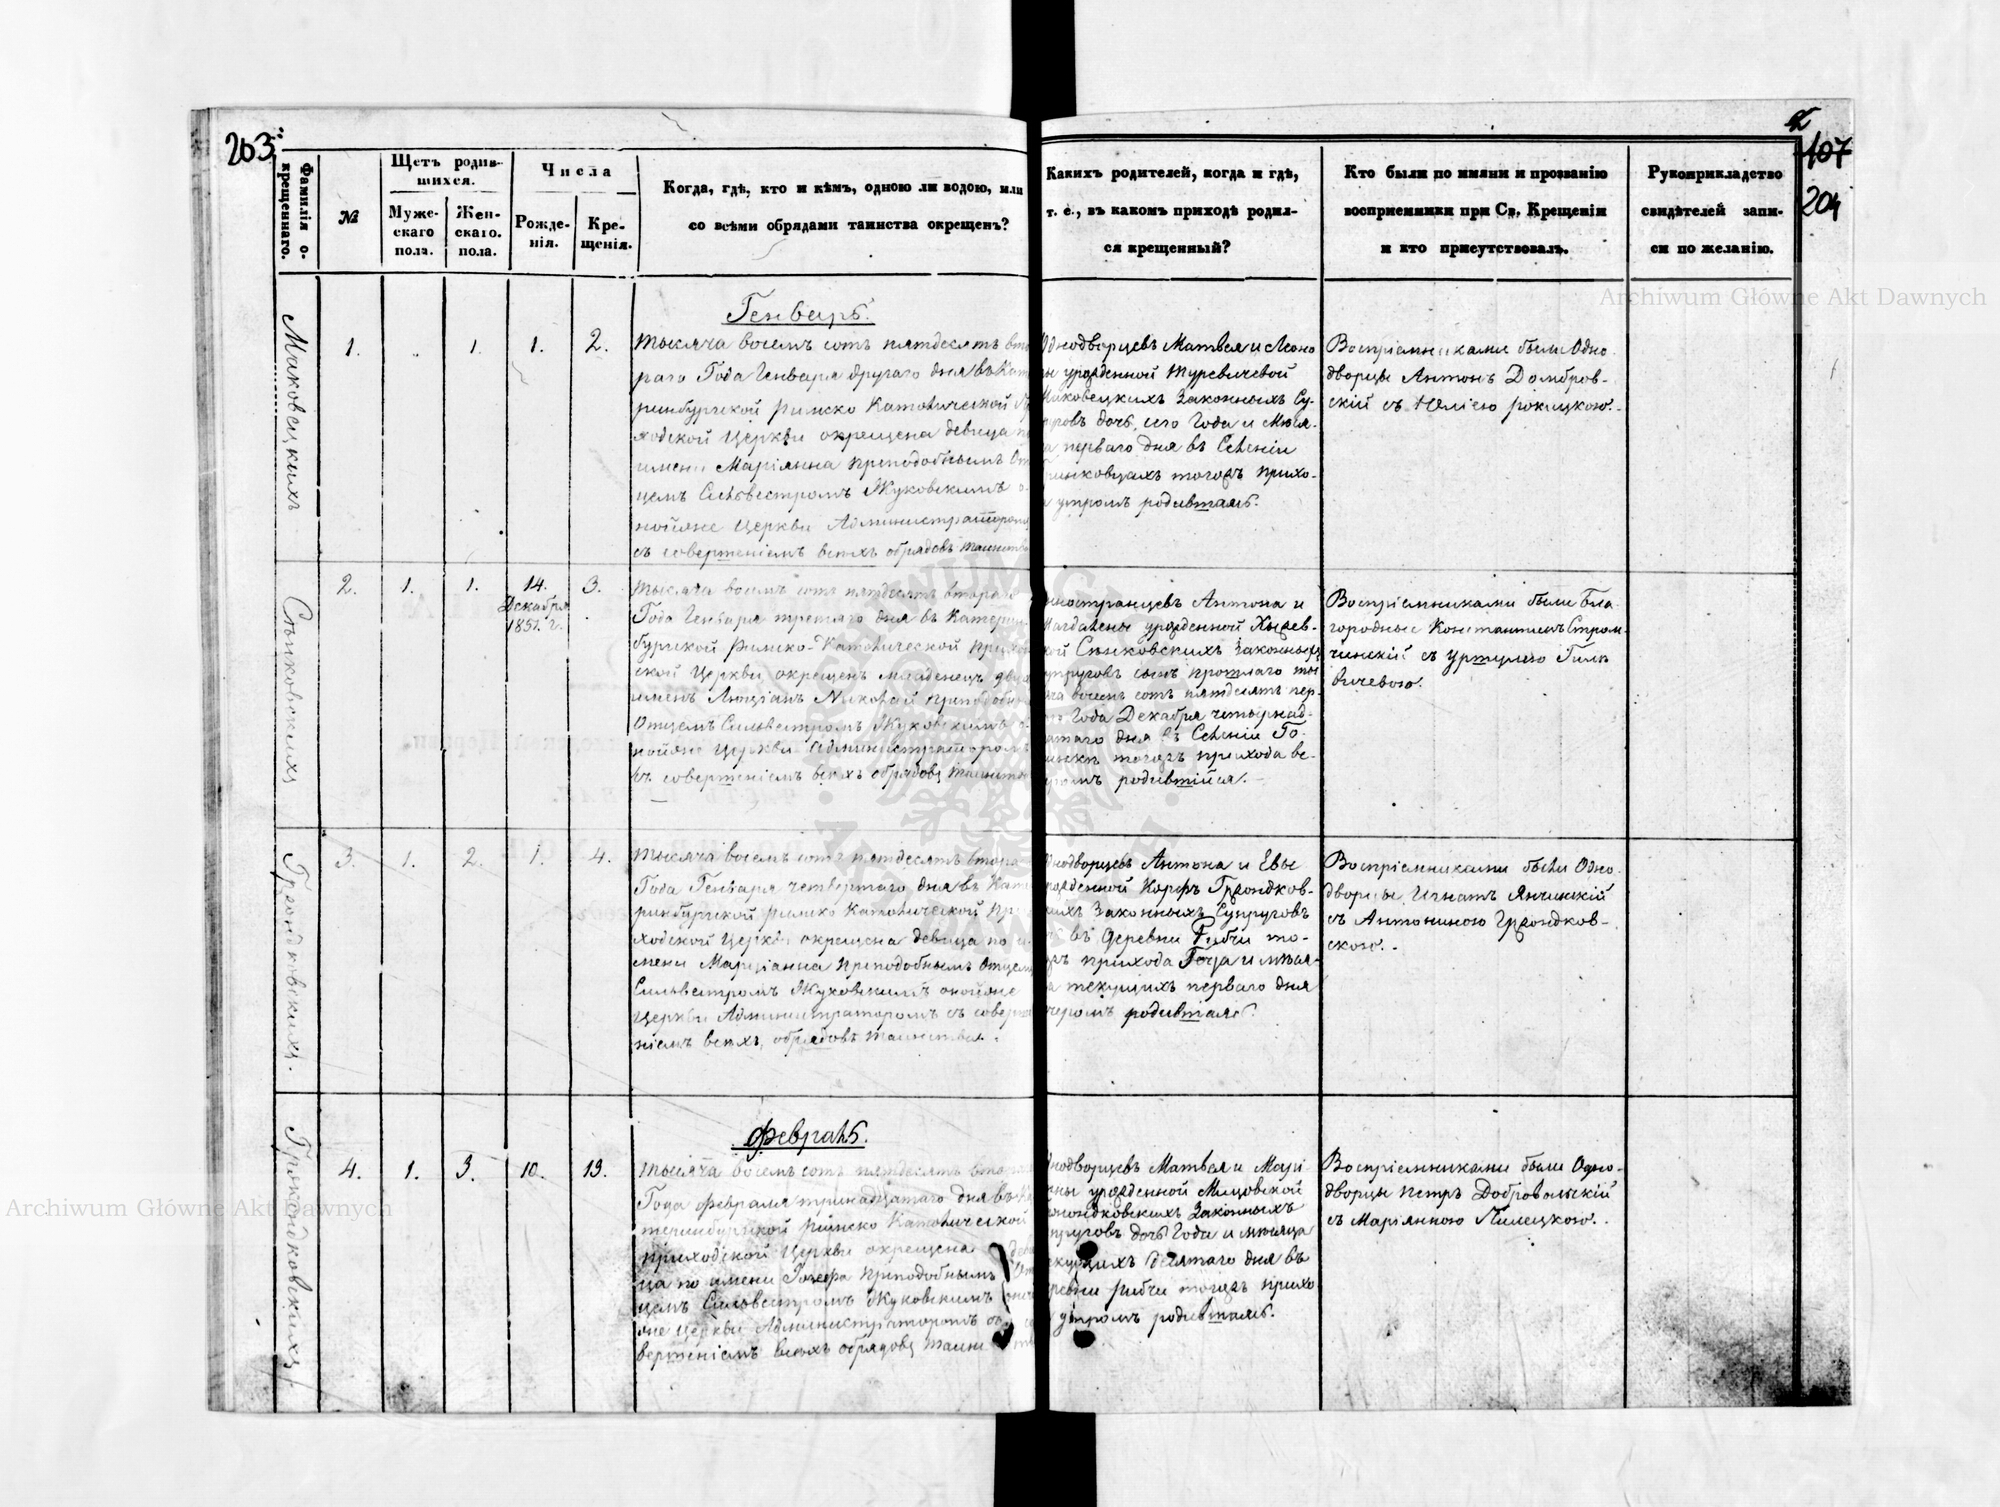 203
107
204
Фамилія о-
крещеннаго.
№
Щетъ родив-
шихся.
Муже-
скаго
пола.
Жен-
скаго.
пола.
Числа
Рожде-
нія.
Кре-
щенія.
Когда, гдѣ, кто и кѣмъ, одною ли водою, или
со всѣми обрядами таинства окрещенъ?
Какихъ родителей, когда и гдѣ,
т. е., въ какомъ приходѣ родил-
ся крещенный?
Кто были по имяни и прозванію
восприемники при Св. Крещеніи
и кто присутствовалъ.
Рукоприкладство
свидѣтелей запи-
си по желанію.
Генварь.
Маковецкихъ
1.
1.
1.
2.
Тысяча восемъ сотъ пятдесятъ вто
раго Года Генваря другаго дня въ Кат
ринбургской Римско Католической П
ходской Церкви окрещена девица п
имени Маріянна Преподобнымъ От
цемъ Сильвестромъ Жуковскимъ о
нойже Церкви Администраторомъ
съ совершеніемъ всѣхъ обрядовъ таинств
Однодворцевъ Матвея и Леоно
ры урожденной Туревичевой
Маковецкихъ Законныхъ Су-
пруговъ дочь, сего Года и Меся-
ца перваго дня въ Селеніи
тогожъ прихо-
утромъ родившаясь.
Воспріемниками были Одно-
дворцы Антонъ Домбров-
скій съ Юліею Рокицкою.
Сѣнковскихъ
2.
1.
1.
14.
Декабря
1851. г.
3.
Тысяча восемъ сотъ пятдесятъ втораго
Года Генваря третяго дня въ Катерин-
бургской Римско-Католической Прихо
ской Церкви окрещенъ младенецъ двумя
имены Люціанъ Николай Преподобны
Отцемъ Сильвестромъ Жуковскимъ о-
нойже Церкви Администраторомъ
съ совершеніемъ всѣхъ обрядовъ таинств
ностранцевъ Антона и
Магдалены урожденной
Сѣнковскихъ Законныхъ
упруговъ сынъ прошлаго ты
ча восемъ сотъ пятдесятъ пер-
Года Декабря четырнад-
цатаго дня въ Селеніи
тогожъ прихода ве-
ромъ родившійся.
Воспріемниками были Бла-
городные Константинъ Стром-
чинскій съ Уршулею
вичевою.
Грондковскихъ.
3.
1.
2.
1.
4.
Тысяча восемъ сотъ пятдесятъ втора
Года Генваря четвертаго дня въ Кате
ринбургской Римско Католической Пр
ходской Церкви окрещена девица по и-
мени Марціанна Преподобнымъ Отцем
Сильвестромъ Жуковскимъ онойже
Церкви Администраторомъ съ соверше
ніемъ всѣхъ обрядовъ таинства.
нодворцевъ Антона и Евы
рожденной Корфъ Грондков-
скихъ Законныхъ Супруговъ
въ деревни Рибчи то-
жъ прихода Года и месяц-
а текущихъ перваго дня
черомъ родившаясь.
Воспріемниками были Одно-
дворцы Игнатъ Янчинскій
съ Антониною Грондков-
скою.
Февраль.
Грондковскихъ
4.
1.
3.
10.
13.
Тысяча восемъ сотъ пятдесятъ втора
Года Февраля тринадцатаго дня въ Ка
теринбургской Римско Католической
Приходской Церкви окрещена деви
ца по имени Іозефа Преподобнымъ От
цемъ Сильвестромъ Жуковскимъ оной
же Церкви Администраторомъ съ со
вершеніемъ всѣхъ обрядовъ таинств
нодворцевъ Матвея и Марі-
нны урожденной Мицовской
рондковскихъ Законныхъ
пруговъ дочь Года и месяца
екущихъ десятаго дня въ
ревни Рибчи тогожъ прихо
утромъ родившаясь.
Воспріемниками были Одно-
дворцы Петръ Добровольскій
съ Маріянною Пилецкою.
Archiwum Główne Akt Dawnych
Archiwum Główne Akt Dawnych